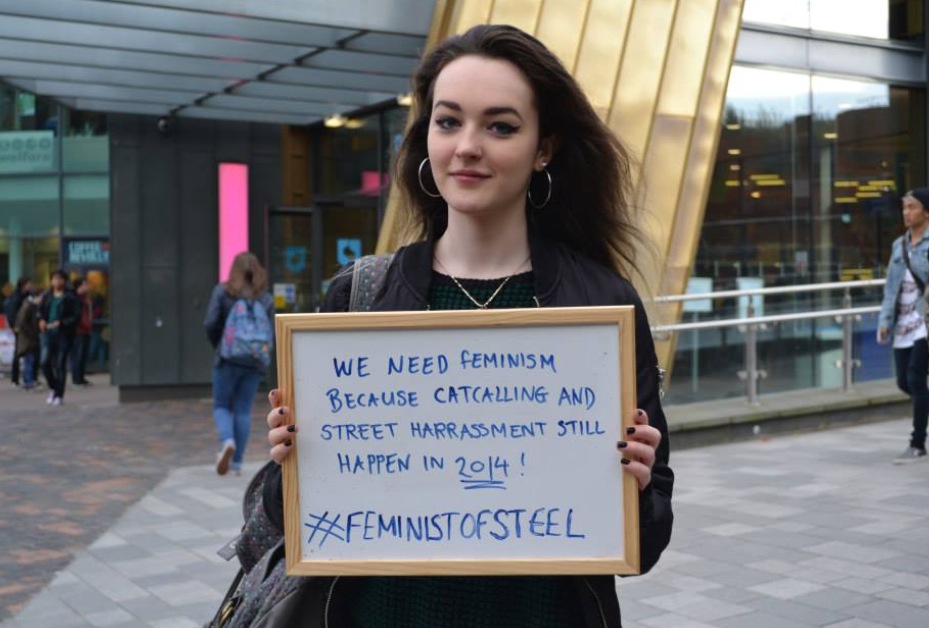 welfare
COFFEE
REVOLUTION
WE NEED FEMINISM
BECAUSE CATCALLING AND
STREET HARRASSMENT STILL
HAPPEN IN 2014!
#FEMINISTOFSTEEL